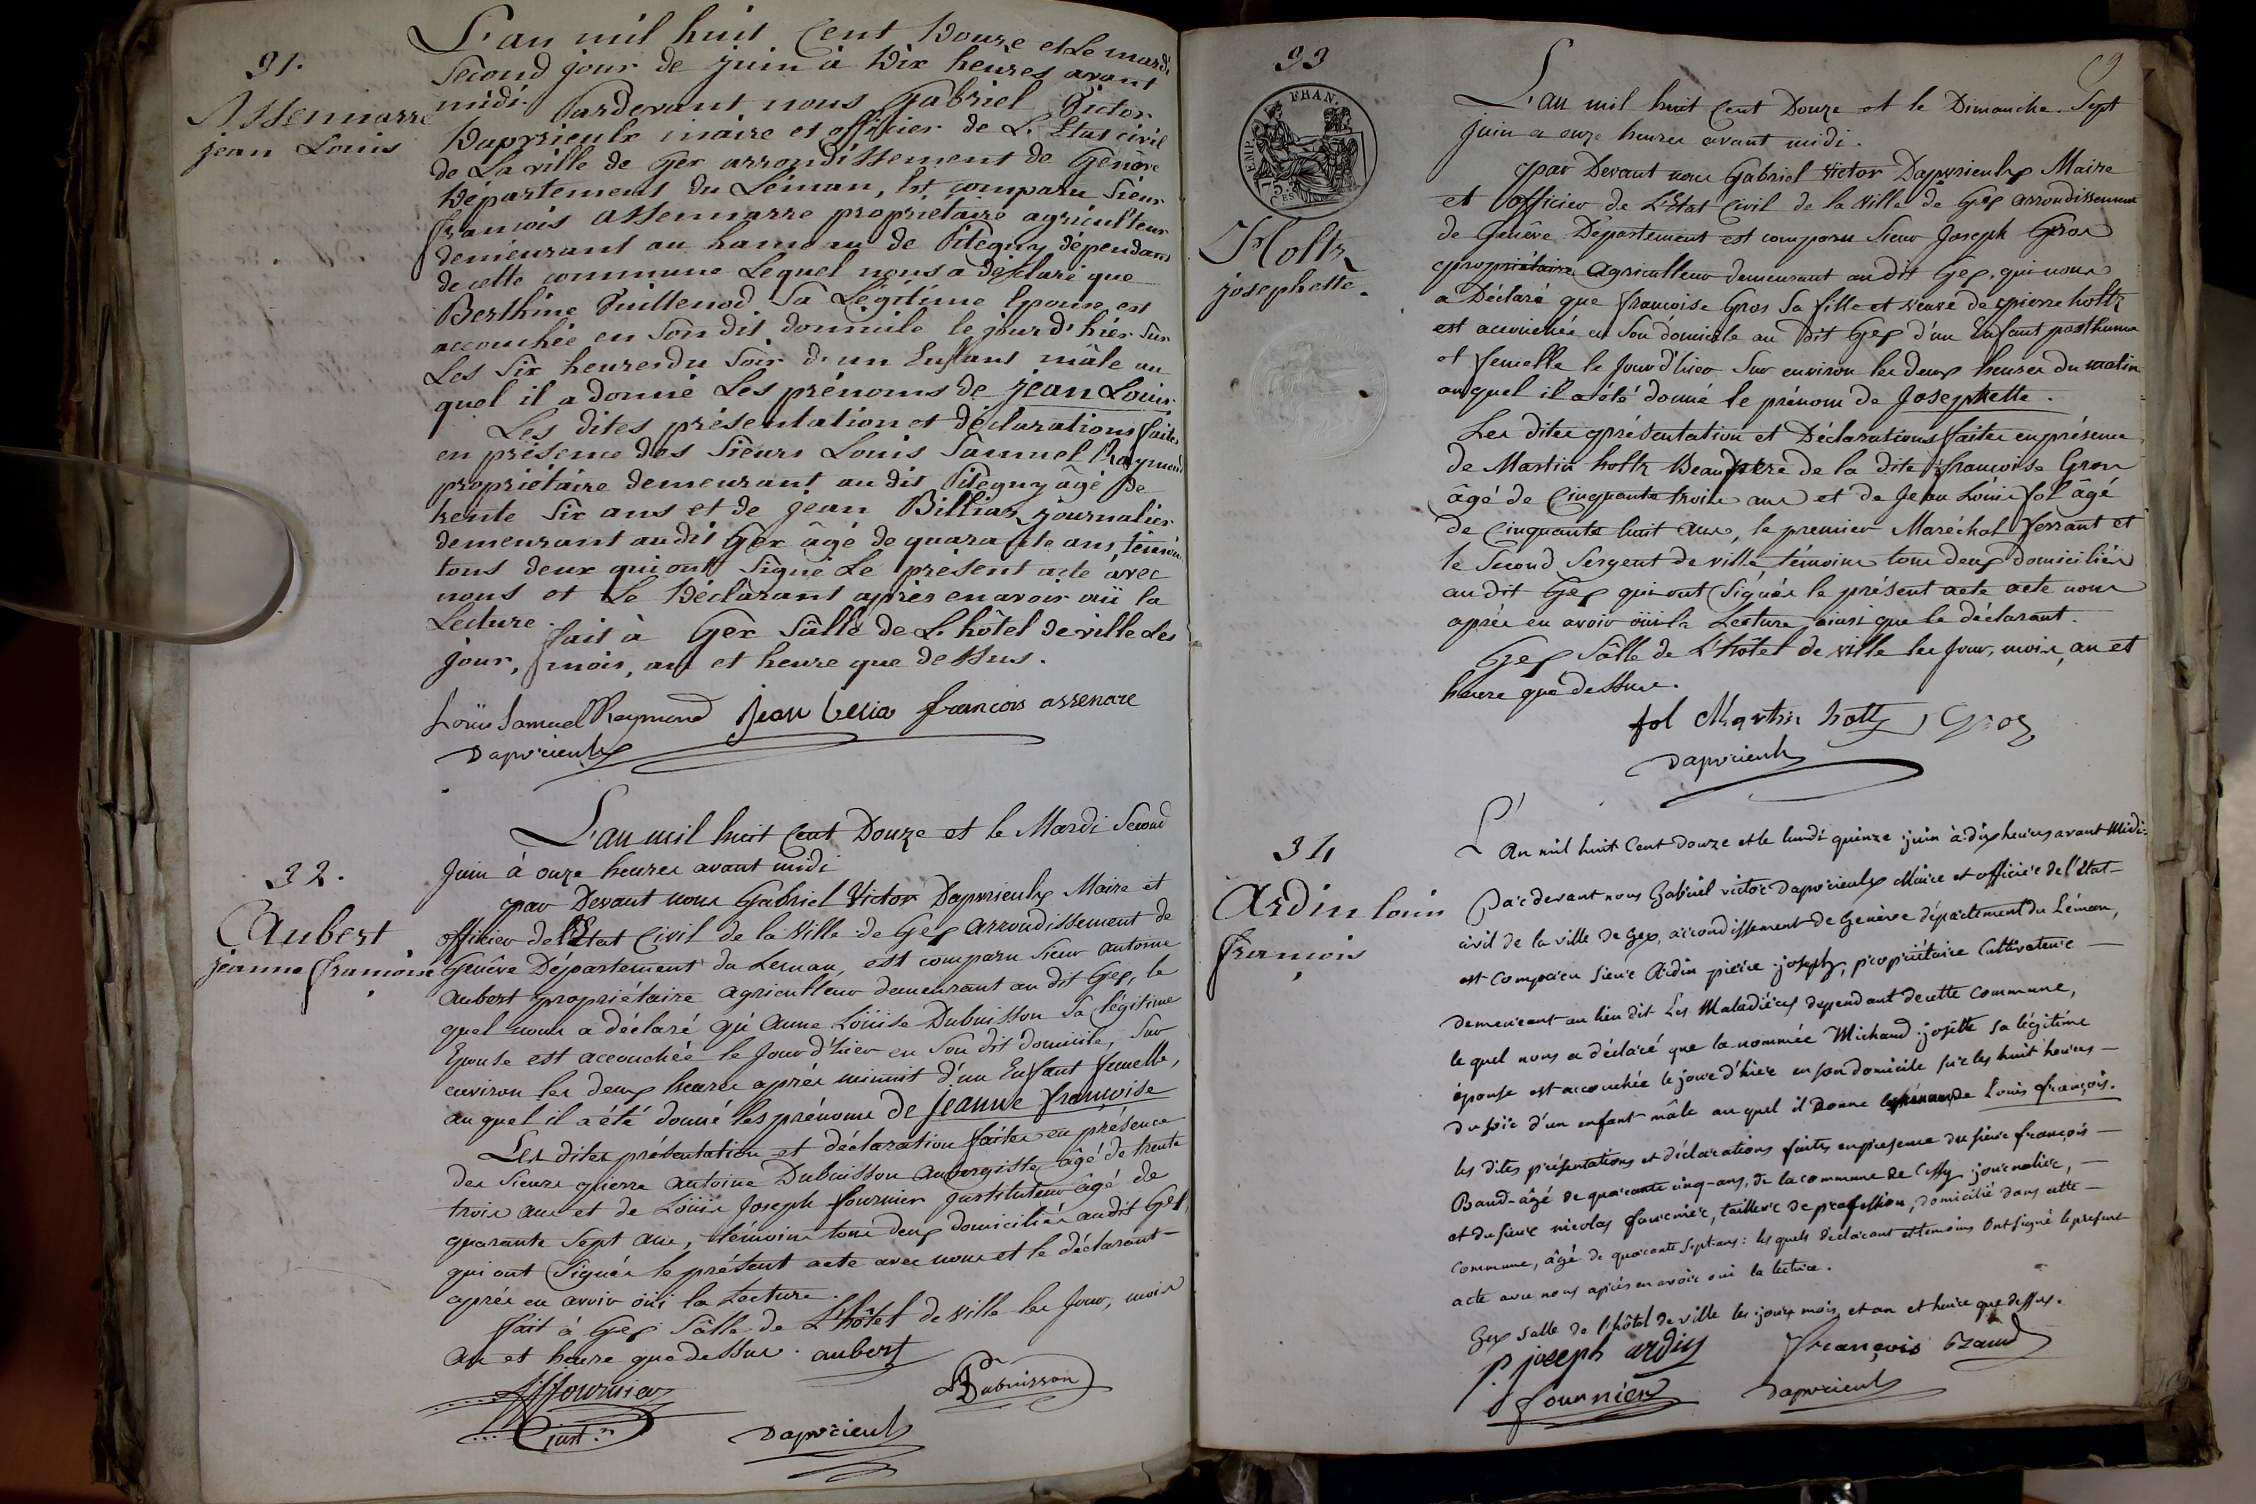 31.
Assennarre
jean Louis
L'an mil huit Cent Douze et Le mardi
Second jour de juin à Dix heures avant
midi. Pardevant nous Gabriel Victor
Daprieulx maire et officier de L'Etat civil
de La ville de Gex arrondissement de Genève
Département du Léman, Est comparu Sieur
françois Assennarre propriétaire agriculteur
demeurant au hameau de Pitegny dépendant
de cette commune Lequel nous a déclaré que
Berthine Sa Légitime Epouse est
accouchée en Son dit domicile le jour d'hier Sur
Les Six heures du Soir d'un Enfant mâle au
quel il a donné Les prénoms de jean Louis
Les dites présentation et déclarations faites
en présence des Sieurs Louis Samuel Raymond
propriétaire demeurant au dit Pitegny âgé de
trente Six ans et de jean Billiaz journalier
demeurant au dit Gex âgé de quarante ans, témoins
tous deux qui ont Signé Le présent acte avec
nous et Le Déclarant après en avoir ouï la
Lecture.
fait à Gex Sâlle de L'hôtel de ville Les
jour, mois, an et heure que dessus.
Loüis Samuel Raymond jean françois assenare
Daprieulx
32.
Aubert
jeanne françoise
L'an mil huit Cent Douze et le Mardi Second
Juin à onze heures avant midi
par Devant nous Gabriel Victor Daprieulx Maire et
officier de l'Etat Civil de la Ville de Gex arrondissement de
Genêve Département du Leman, est comparu Sieur antoine
aubert propriétaire agriculteur demeurant au dit Gex, le
quel nous a déclaré qu'Anne Loüise Dubuisson Sa légitime
Epouse est accouchée le Jour d'hier en Son dit domicile, Sur
environ les deux heures après minuit d'un Enfant femelle,
au quel il a été donné les prénoms de Jeanne françoise
Les dites présentation et déclaration faites en présence
des Sieurs pierre antoine Dubuisson aubergiste âgé de trente
trois ans et de Loüis Joseph fournier Instituteur âgé de
quarante Sept ans, témoins tous deux domiciliés au dit Gex,
qui ont Signés le présent acte avec nous et le déclarant
après en avoir ôüi la Lecture.
fait à Gex Sâlle de L'hôtel de ville les Jour, mois
an et heure que dessus. aubert
fournier
Dubuisson
inst.
Daprieulx
33
9
FRAN.
EMP.
Holtz
josephette.
L'an mil huit Cent Douze et le Dimanche Sept
juin a onze heures avant midi.
par Devant nous Gabriel Victor Daprieulx Maire
et officier de L'Etat Civil de la Ville de Gex arrondissement
de Genêve Département est comparu Sieur Joseph Gros
propriétaire agriculteur demeurant au dit Gex, qui nous
a Déclaré que françoise Gros Sa fille et veuve de pierre holtz
est accouchée en Son domicile au dit Gex d'un Enfant posthume
et femelle le Jour d'hier Sur environ les deux heures du matin
au quel il a été donné le prénom de Josephette.
Les dites présentation et Déclarations faites en présence
de Martin holtz Beaupere de la dite françoise Gros
âgé de Cinquante trois ans et de Jean Loüis fol âgé
de Cinquante huit ans, le premier Maréchal ferrant et
le Second Sergent de ville témoins tous deux domiciliés
au dit Gex qui ont Signés le présent acte acte nous
après en avoir ôüi la Lecture, ainsi que le déclarant.
Gex Sâlle de L'hôtel de ville les Jour, mois, an et
heure que dessus.
fol Martin holtz Gros
Daprieulx
34
Ardin louis
françois
L'An mil huit Cent douze et le lundi quinze juin à dix heures avant Midi.
Par devant nous Gabriel victor Daprieulx Maire et officier de l'Etat-
civil de la ville de Gex, arrondissement de Genève département du Léman,
est comparu Sieur Ardin pierre joseph, propriétaire Cultivateur —
demeurant au lieu dit Les Maladières dependant de cette Commune,
le quel nous a déclaré que la nommée Michaud josette sa légitime
épouse est accouchée le jour d'hier en son domicile sur les huit heures —
du soir d'un enfant mâle au quel il donne les prénoms de Louis françois.
les dites présentations et déclarations faites en presence du sieur françois —
Baud âgé de quarante cinq ans, de la commune de Cessy journalier, —
et du sieur nicolas fournier, tailleur de profession, domicilié dans cette —
commune, âgé de quarante Sept ans: les quels déclarant et temoins Ont signé le present
acte avec nous après en avoir oui la lecture.
Gex salle de l'hôtel de ville les jour mois et an et heure que dessus.
P. joseph ardin françois Baud
fournier Daprieulx